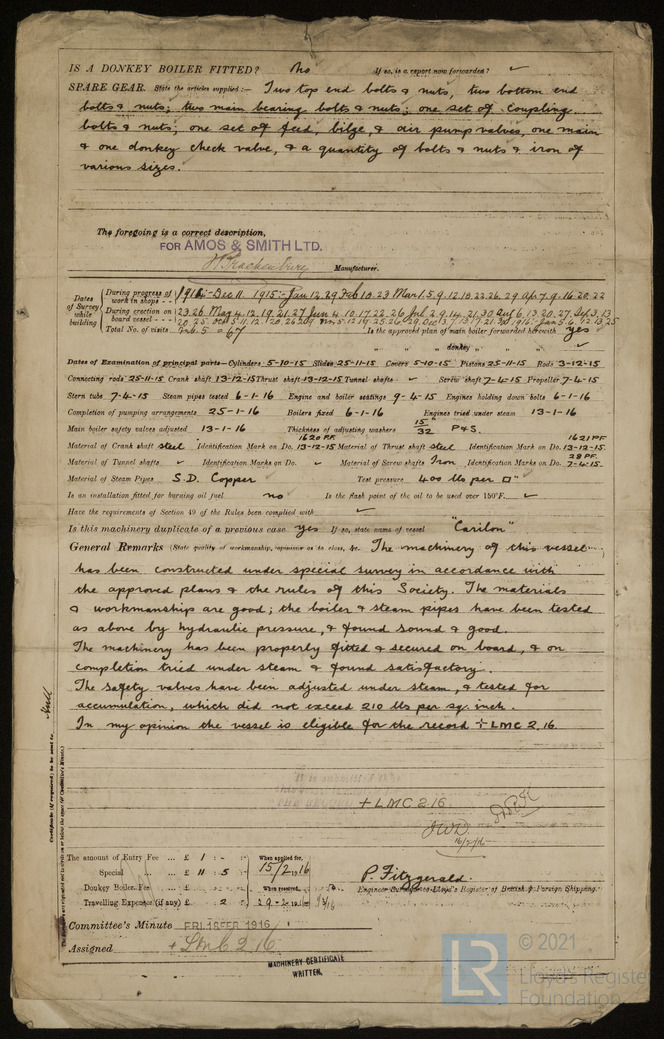 IS A DONKEY BOILER FITTED? No If so, is a report now forwarded? ✓
SPARE GEAR. State the articles supplied:— Two top end bolts & nuts, two bottom end
bolts & nuts; two main bearing bolts & nuts; one set of coupling
bolts & nuts; one set of feed, bilge, & air pump valves, one main
& one donkey check valve, & a quantity of bolts & nuts & iron of
various sizes.
The foregoing is a correct description,
FOR AMOS & SMITH LTD.
Manufacturer.
Dates of Survey while building
During progress of work in shops - - Dec 11. 1915 - Jan 12. 29 Feb 10. 23 Mar 1. 5. 9. 12. 18. 22. 26. 29 Apr 7. 9. 16. 20. 22
During erection on board vessel - - - 23. 26. May 4. 12. 19. 21. 27 Jun 4 10. 17. 22. 26 Jul 2. 9. 14. 21. 30 Aug 6. 13. 20. 27. Sep 3. 13
Total No. of visits 67 Is the approved plan of main boiler forwarded herewith yes
" " " donkey " " ✓
Dates of Examination of principal parts—Cylinders 5-10-15 Slides 25-11-15 Covers 5-10-15 Pistons 25-11-15 Rods 3-12-15
Connecting rods 25-11-15 Crank shaft 13-12-15 Thrust shaft 13-12-15 Tunnel shafts ✓ Screw shaft 7-4-15 Propeller 7-4-15
Stern tube 7-4-15 Steam pipes tested 6-1-16 Engine and boiler seatings 9-4-15 Engines holding down bolts 6-1-16
Completion of pumping arrangements 25-1-16 Boilers fixed 6-1-16 Engines tried under steam 13-1-16
Main boiler safety valves adjusted 13-1-16 Thickness of adjusting washers 15/32 P & S.
Material of Crank shaft steel Identification Mark on Do. 1620 P.F. 13-12-15 Material of Thrust shaft steel Identification Mark on Do. 1621 P.F. 13-12-15.
Material of Tunnel shafts ✓ Identification Marks on Do. ✓ Material of Screw shafts Iron Identification Marks on Do. 28 P.F. 7-4-15.
Material of Steam Pipes S.D. Copper Test pressure 400 lbs per □"
Is an installation fitted for burning oil fuel no Is the flash point of the oil to be used over 150°F. ✓
Have the requirements of Section 49 of the Rules been complied with ✓
Is this machinery duplicate of a previous case yes If so, state name of vessel "Carilon"
General Remarks (State quality of workmanship, opinions as to class, &c. The machinery of this vessel
has been constructed under special survey in accordance with
the approved plans & the rules of this Society. The materials
& workmanship are good; the boiler & steam pipes have been tested
as above by hydraulic pressure, & found sound & good.
The machinery has been properly fitted & secured on board, & on
completion tried under steam & found satisfactory.
The safety valves have been adjusted under steam, & tested for
accumulation, which did not exceed 210 lbs per sq. inch.
In my opinion the vessel is eligible for the record + LMC 2.16.
+ LMC 2.16
J.W.D.
16/2/16
The amount of Entry Fee ... £ 1 : - : - When applied for,
Special ... £ 11 : 5 : 15/2/1916
Donkey Boiler Fee £ : : When received,
Travelling Expenses (if any) £ : 2 : 29-2-1916
P. Fitzgerald.
Engineer Surveyor to Lloyd's Register of British & Foreign Shipping.
Committee's Minute FRI. 18 FEB 1916
Assigned + LMC 2.16
MACHINERY CERTIFICATE
WRITTEN.
Certificate (if required) to be sent to Hull
LR © 2021
Lloyd's Register
Foundation